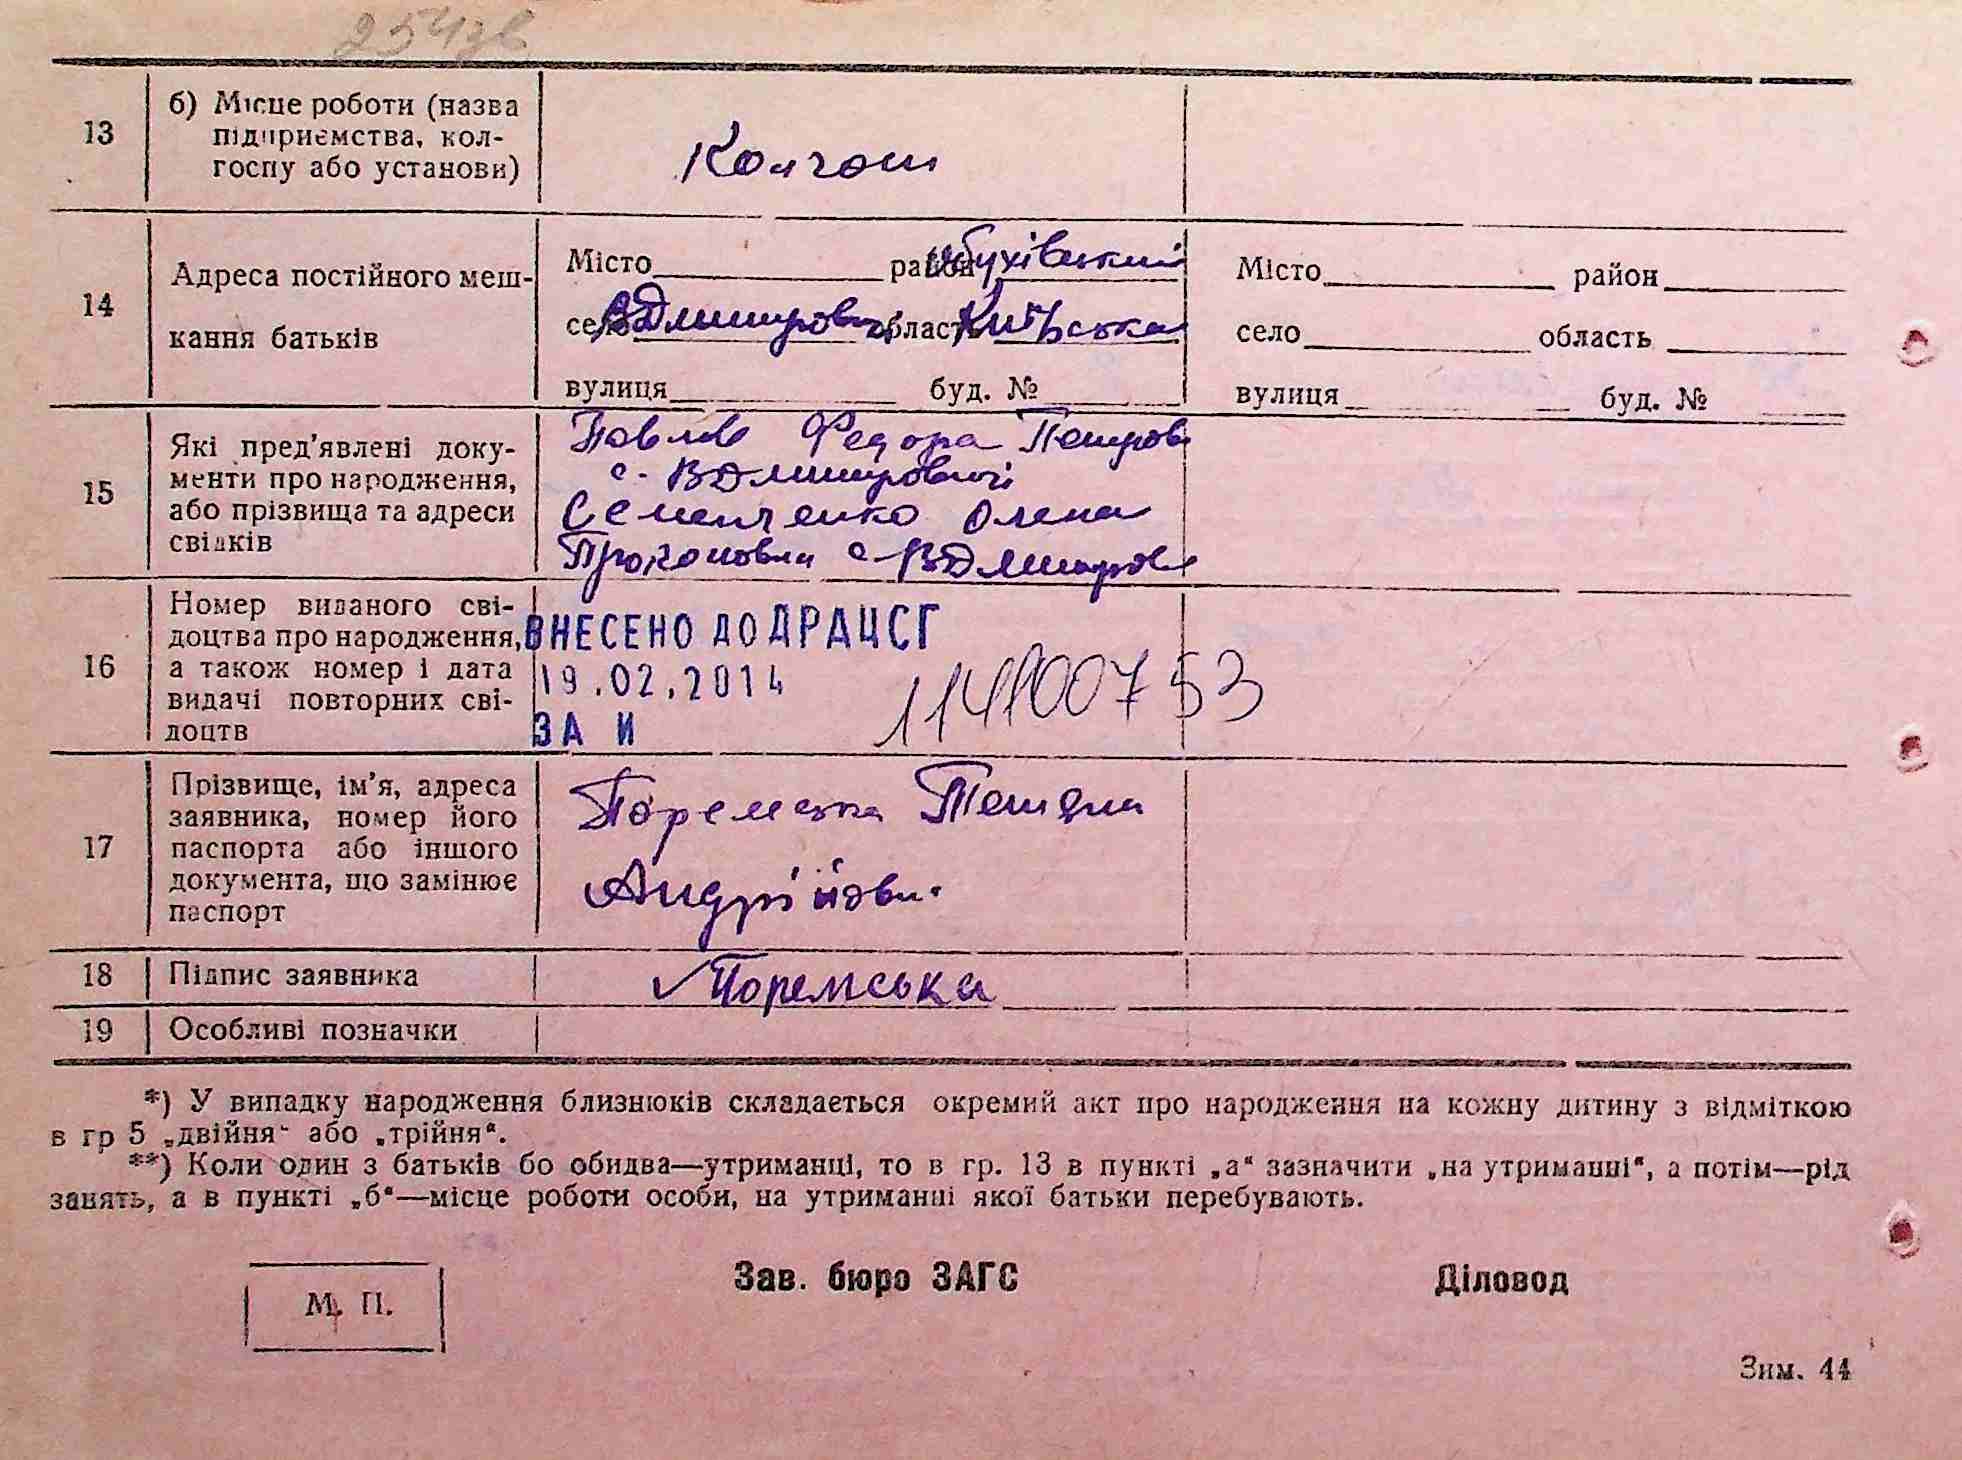 254зв
13
б) Місце роботи (назва
підприємства, кол-
госпу або установи)
Колгосп
14
Адреса постійного меш-
кання батьків
Місто район Обухівський
село В Дмитровичі область Київська
вулиця буд. №
Місто район
село область
вулиця буд. №
15
Які пред’явлені доку-
менти про народження,
або прізвища та адреси
свідків
Федора Петров
с. В Дмитровичі
Семенченко Олена
Прокоповна с В Дмитров
16
Номер виданого сві-
доцтва про народження,
а також номер і дата
видачі повторних сві-
доцтв
ВНЕСЕНО ДО ДРАЦСГ
19.02.2014
ЗА И
17
Прізвище, ім’я, адреса
заявника, номер його
паспорта або іншого
документа, що замінює
паспорт
Поремська Тетяна
Андріївн.
18
Підпис заявника
Поремська
19
Особливі позначки
*) У випадку народження близнюків складається окремий акт про народження на кожну дитину з відміткою
в гр 5 „двійня“ або „трійня“.
**) Коли один з батьків бо обидва—утриманці, то в гр. 13 в пункті „а“ зазначити „на утриманні“, а потім—рід
занять, а в пункті „б“—місце роботи особи, на утриманні якої батьки перебувають.
М. П.
Зав. бюро ЗАГС
Діловод
Зим. 44